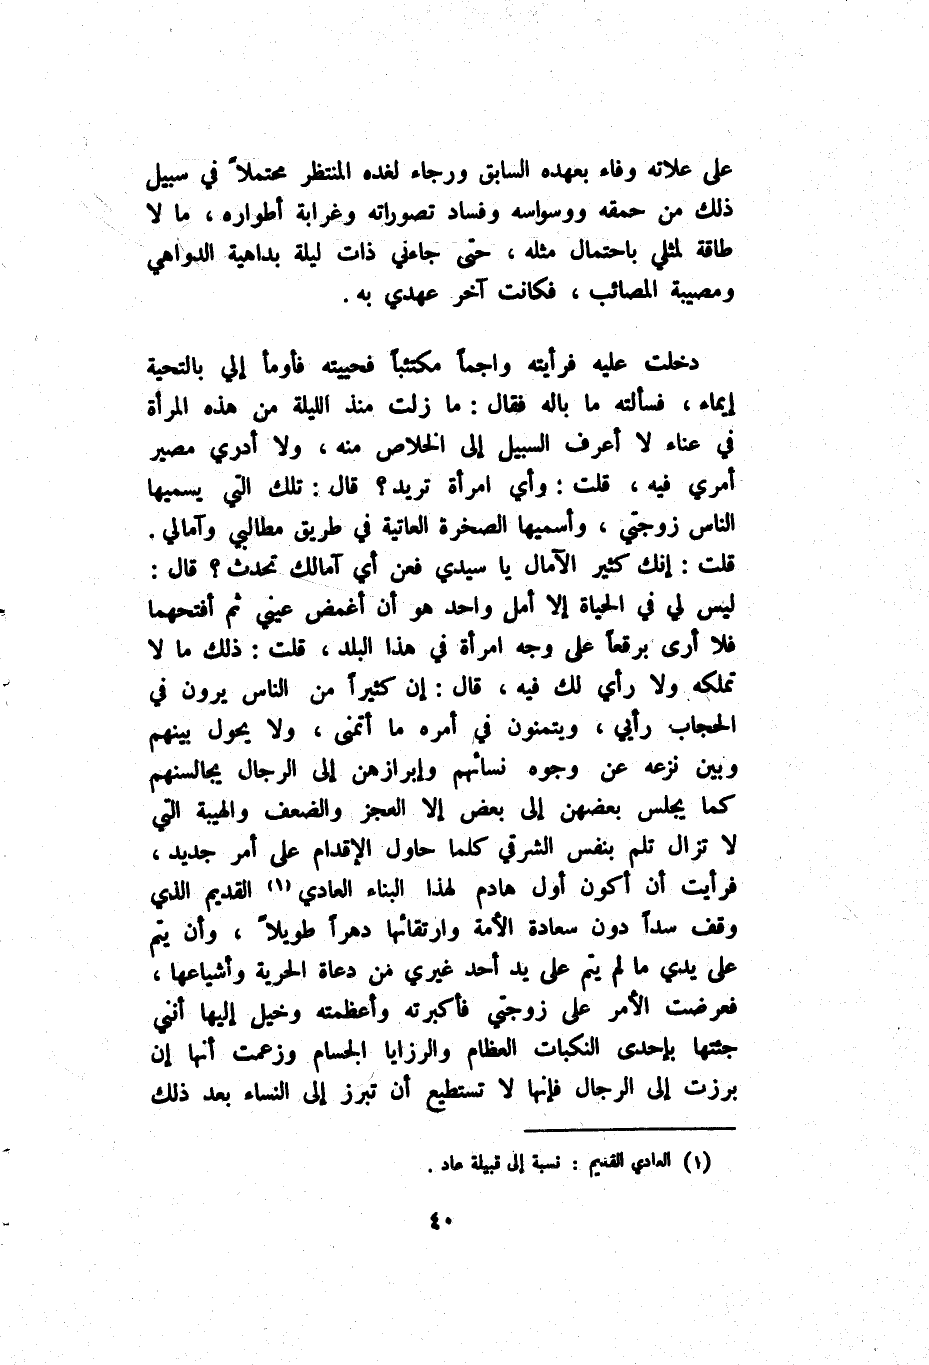 على علاته وفاء بعهده السابق ورجاء لغده المنتظر محتملاً في سبيل
ذلك من حمقه ووسواسه وفساد تصوراته وغرابة أطواره ، ما لا
طاقة لمثلي باحتمال مثله ، حتى جاءني ذات ليلة بداهية الدواهي
ومصيبة المصائب ، فكانت آخر عهدي به .
دخلت عليه فرأيته واجماً مكتئباً فحييته فأومأ إلي بالتحية
إيماء ، فسألته ما باله فقال : ما زلت منذ الليلة من هذه المرأة
في عناء لا أعرف السبيل إلى الخلاص منه ، ولا أدري مصير
أمري فيه ، قلت : وأي امرأة تريد ؟ قال : تلك التي يسميها
الناس زوجتي ، وأسميها الصخرة العاتية في طريق مطالبي وآمالي .
قلت : إنك كثير الآمال يا سيدي فعن أي آمالك تحدث ؟ قال :
ليس لي في الحياة إلا أمل واحد هو أن أغمض عيني ثم أفتحهما
فلا أرى برقعاً على وجه امرأة في هذا البلد ، قلت : ذلك ما لا
تملكه ولا رأي لك فيه ، قال : إن كثيراً من الناس يرون في
الحجاب رأيي ، ويتمنون في أمره ما أتمنى ، ولا يحول بينهم
وبين نزعه عن وجوه نسائهم وإبرازهن إلى الرجال يجالسنهم
كما يجلس بعضهن إلى بعض إلا العجز والضعف والهيبة التي
لا تزال تلم بنفس الشرقي كلما حاول الإقدام على أمر جديد ،
فرأيت أن أكون أول هادم لهذا البناء العادي (١) القديم الذي
وقف سداً دون سعادة الأمة وارتقائها دهراً طويلاً ، وأن يتم
على يدي ما لم يتم على يد أحد غيري من دعاة الحرية وأشياعها ،
فعرضت الأمر على زوجتي فأكبرته وأعظمته وخيل إليها أنني
جئتها بإحدى النكبات العظام والرزايا الجسام وزعمت أنها إن
برزت إلى الرجال فإنها لا تستطيع أن تبرز إلى النساء بعد ذلك
(١) العادي القديم : نسبة إلى قبيلة عاد .
٤٠